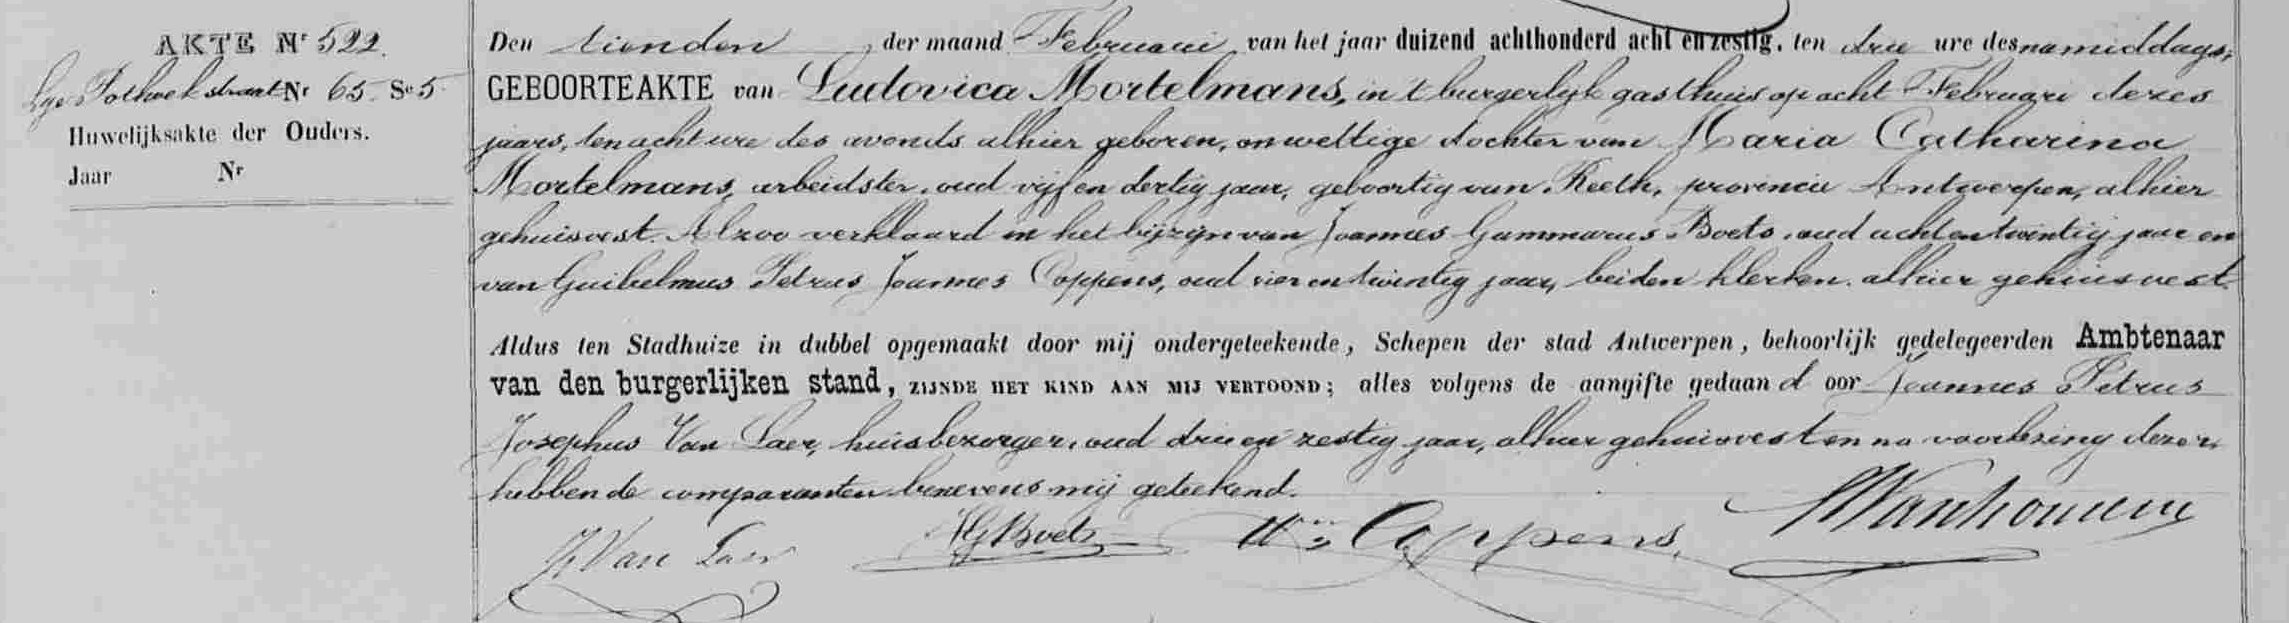 AKTE Nr 522.
Lge Pothoekstraat Nr 65 Se 5
Huwelijksakte der Ouders.
Jaar Nr
Den tienden der maand Februari van het jaar duizend achthonderd acht en zestig, ten drie ure des namiddags,
GEBOORTEAKTE van Ludovica Mortelmans, in 't burgerlyk gasthuis op acht Februari dezes
jaars, ten acht ure des avonds alhier geboren, onwettige dochter van Maria Catharina
Mortelmans, arbeidster, oud vijf en dertig jaar, geboortig van Reeth, provincie Antwerpen, alhier
gehuisvest. Alzoo verklaard in het bijzijn van Joannes Gummarus Boets, oud acht en twintig jaar en
van Guilielmus Petrus Joannes Coppens, oud vier en twintig jaar, beiden klerken, alhier gehuisvest.
Aldus ten Stadhuize in dubbel opgemaakt door mij ondergeteekende, Schepen der stad Antwerpen, behoorlijk gedelegeerden Ambtenaar
van den burgerlijken stand, ZIJNDE HET KIND AAN MIJ VERTOOND; alles volgens de aangifte gedaan door Joannes Petrus
Josephus Van Laer, huisbezorger, oud drie en zestig jaar, alhier gehuisvest en na voorlezing dezer,
hebben de comparanten benevens mij geteekend.
Van Laer JG Boets Wm Coppens.